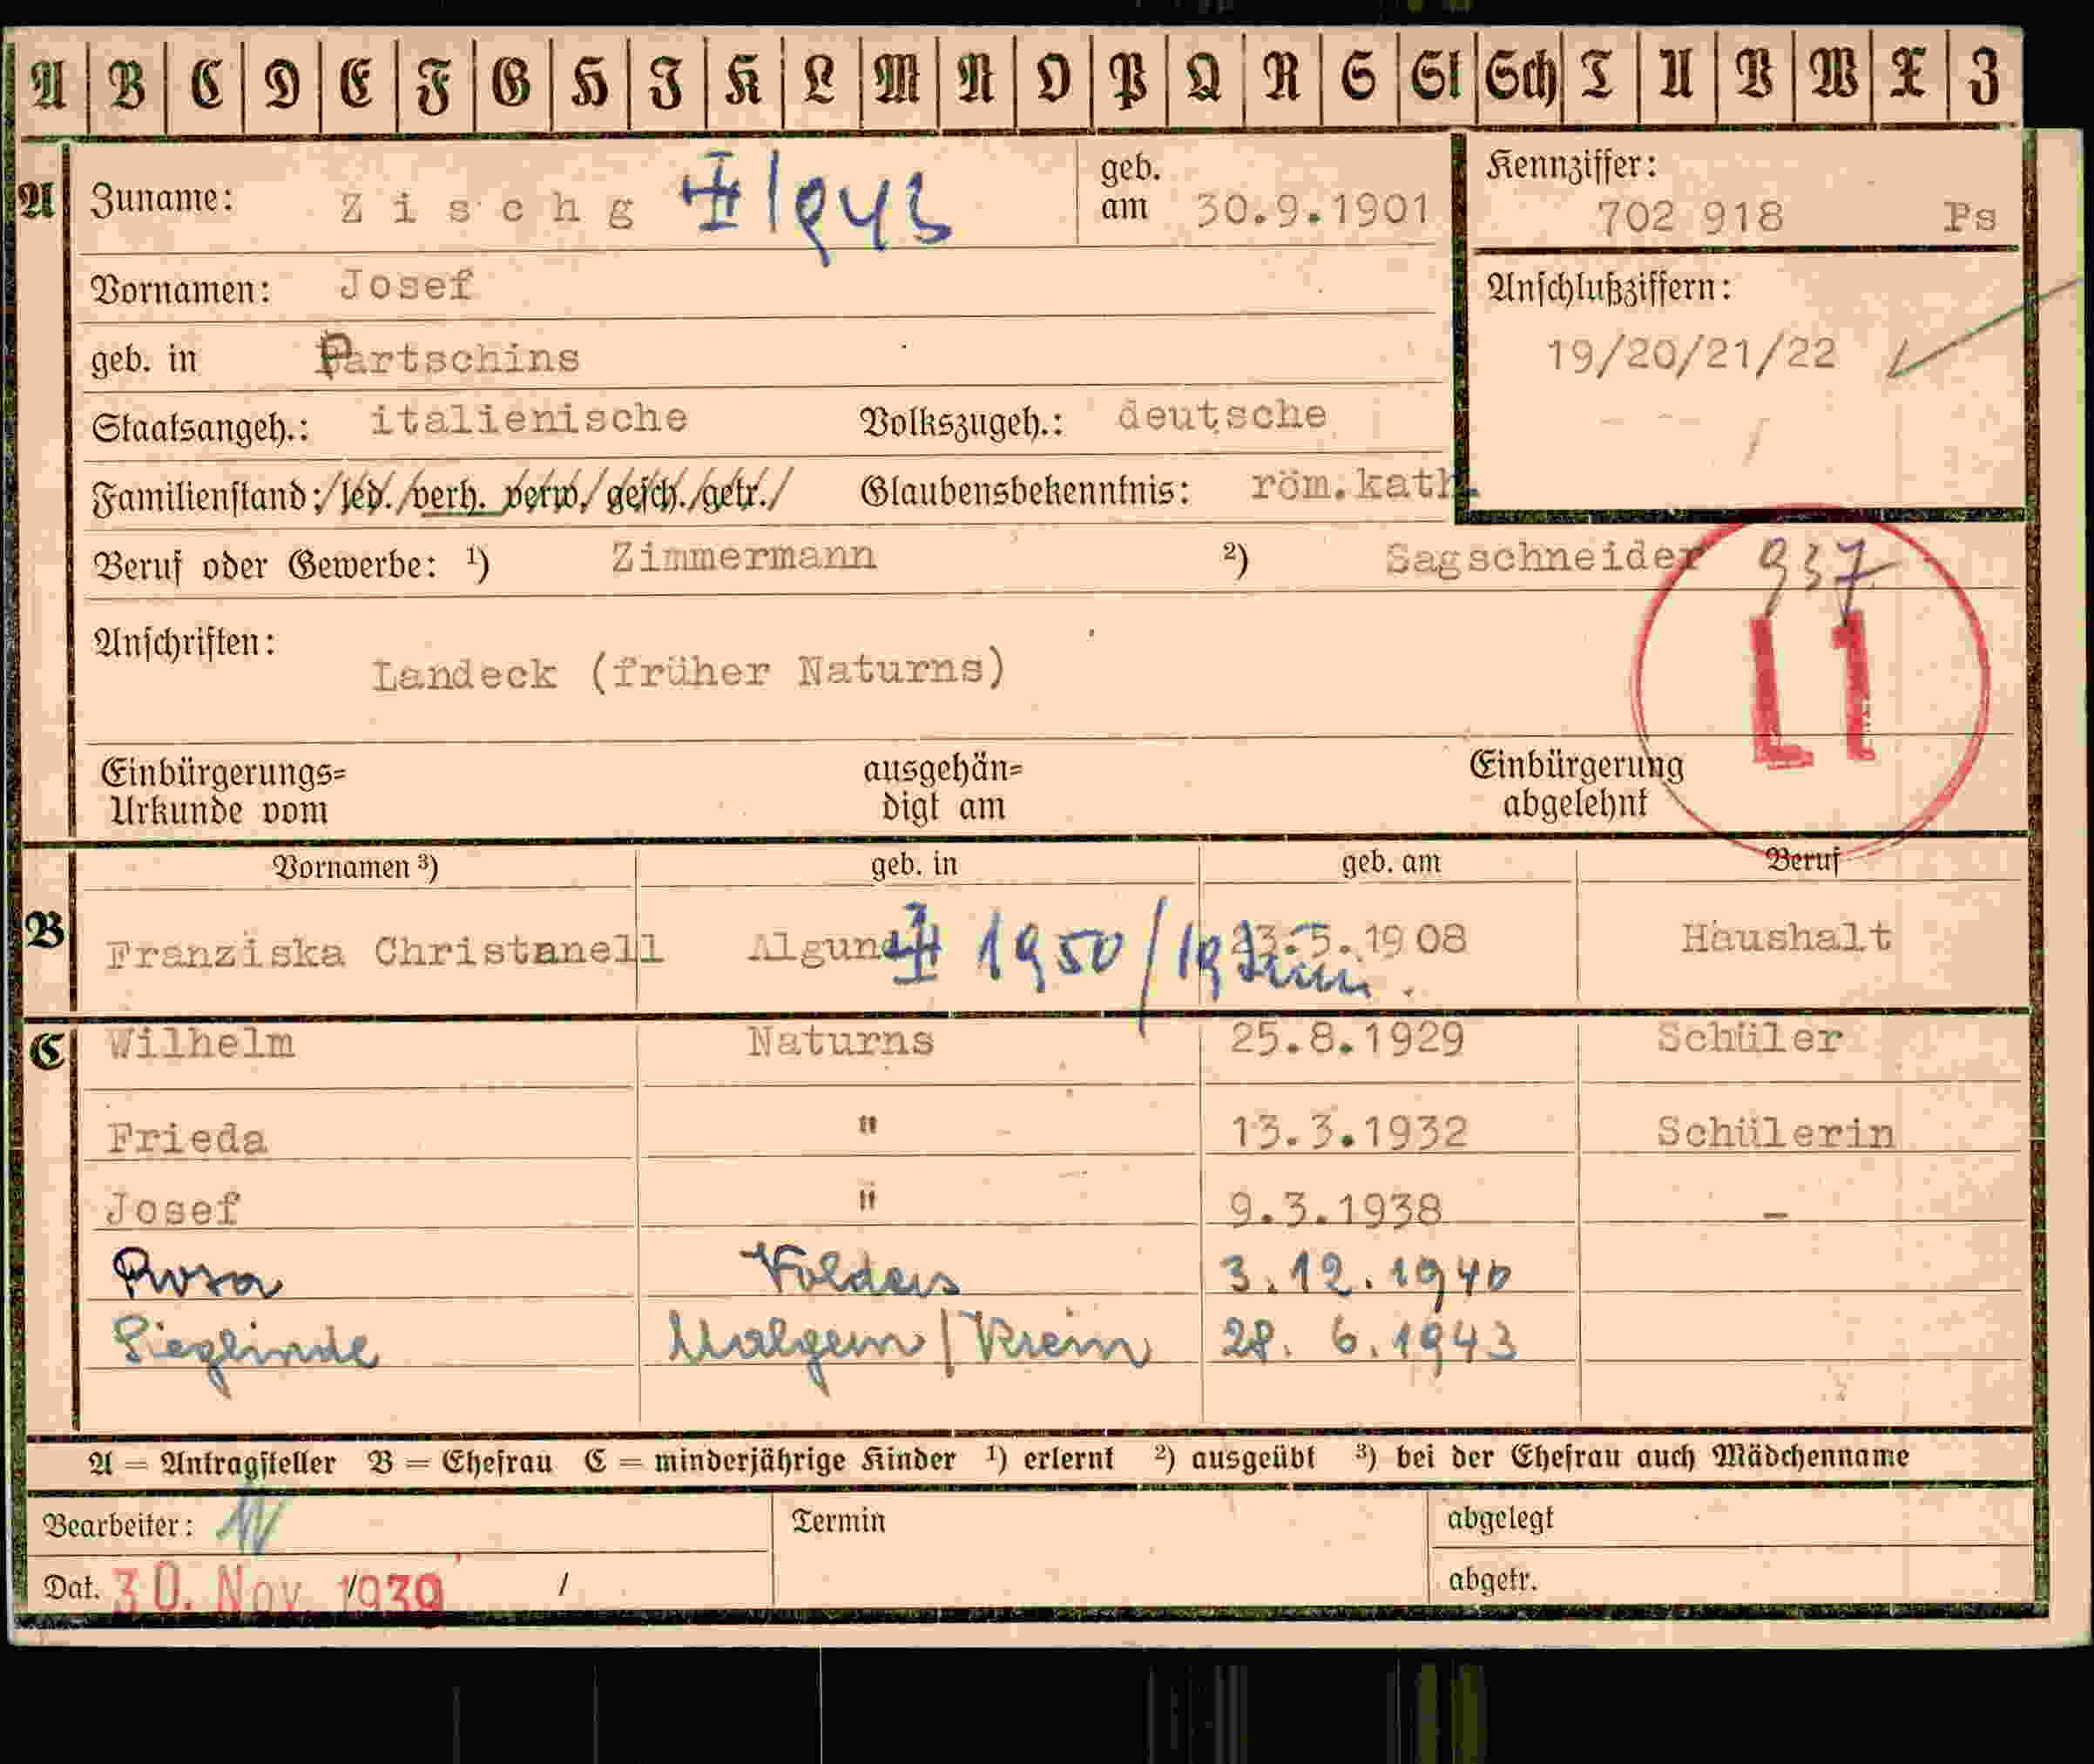 A B C D E F G H I K L M N O P Q R S St Sch T U V W X Z
A Zuname: Zischg 1943 geb. am 30.9.1901 Kennziffer: 702 918 Ps
Vornamen: Josef Anschlußziffern:
geb. in Partschins 19/20/21/22
Staatsangeh.: italienische Volkszugeh.: deutsche
Familienstand: led./verh. verw./gesch./getr./ Glaubensbekenntnis: röm.kath.
Beruf oder Gewerbe: ¹) Zimmermann ²) Sagschneider 937
Anschriften: L1
Landeck (früher Naturns)
Einbürgerungs= ausgehän= Einbürgerung
Urkunde vom digt am abgelehnt
Vornamen ³) geb. in geb. am Beruf
B Franziska Christanell Algund 1950/19 23.5.1908 Haushalt
C Wilhelm Naturns 25.8.1929 Schüler
Frieda " 13.3.1932 Schülerin
Josef " 9.3.1938 -
Rosa Volders 3.12.1940
Sieglinde 28. 6.1943
A = Antragsteller B = Ehefrau C = minderjährige Kinder ¹) erlernt ²) ausgeübt ³) bei der Ehefrau auch Mädchenname
Bearbeiter: Termin abgelegt
Dat. 30. Nov. 1939 / abgetr.